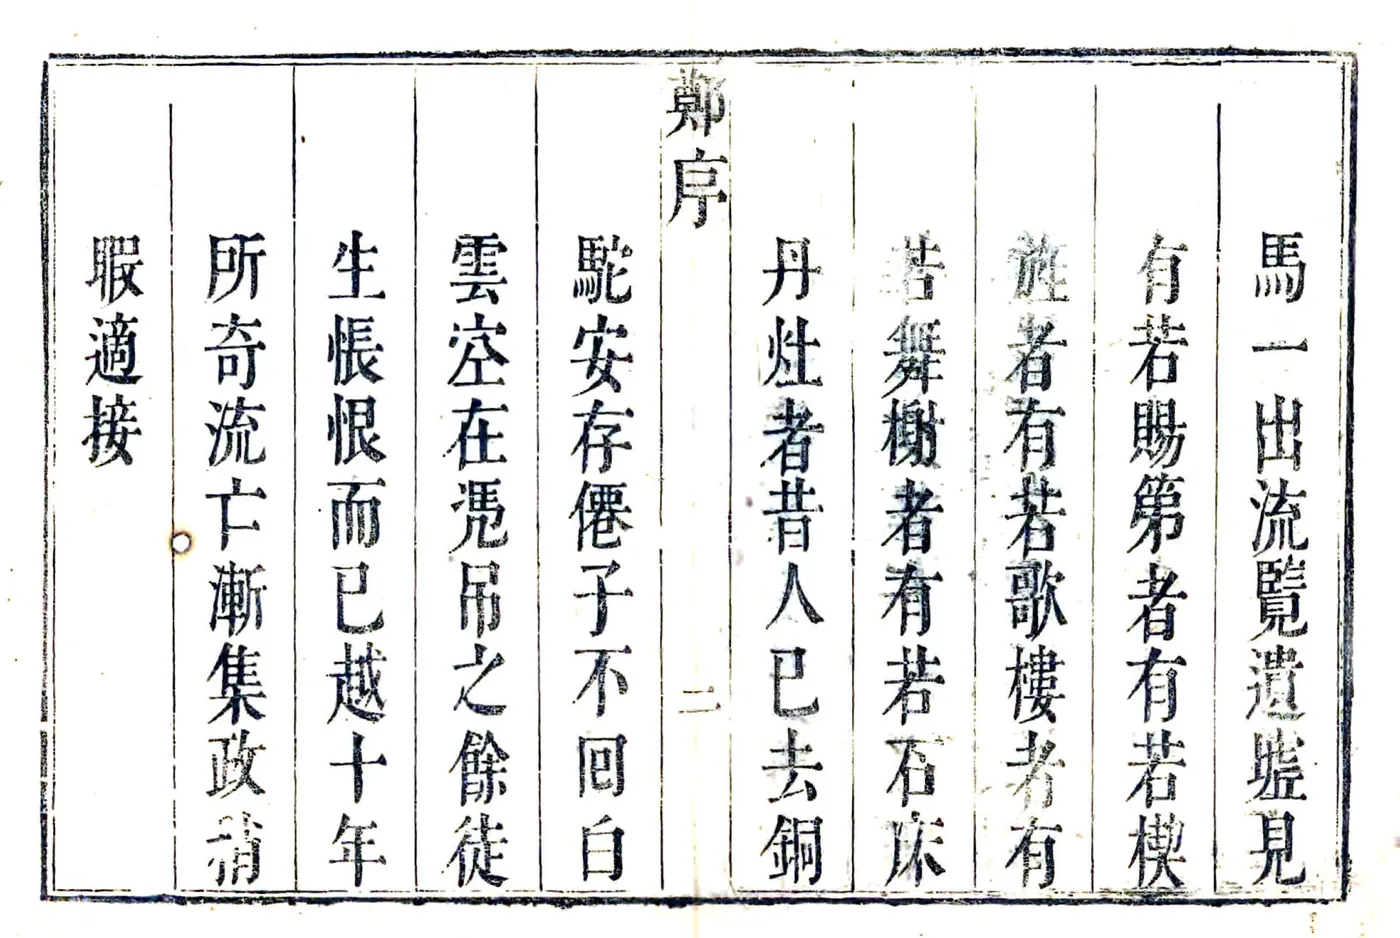 馬一出流覽遺墟見
有若賜第者有若楔
旌者有若歌樓者有
若舞榭者有若石床
丹灶者昔人已去銅
鄭序
二
駝安存僊子不回白
雲空在憑吊之餘徒
生悵恨而已越十年
所奇流亡漸集政稍
暇適接